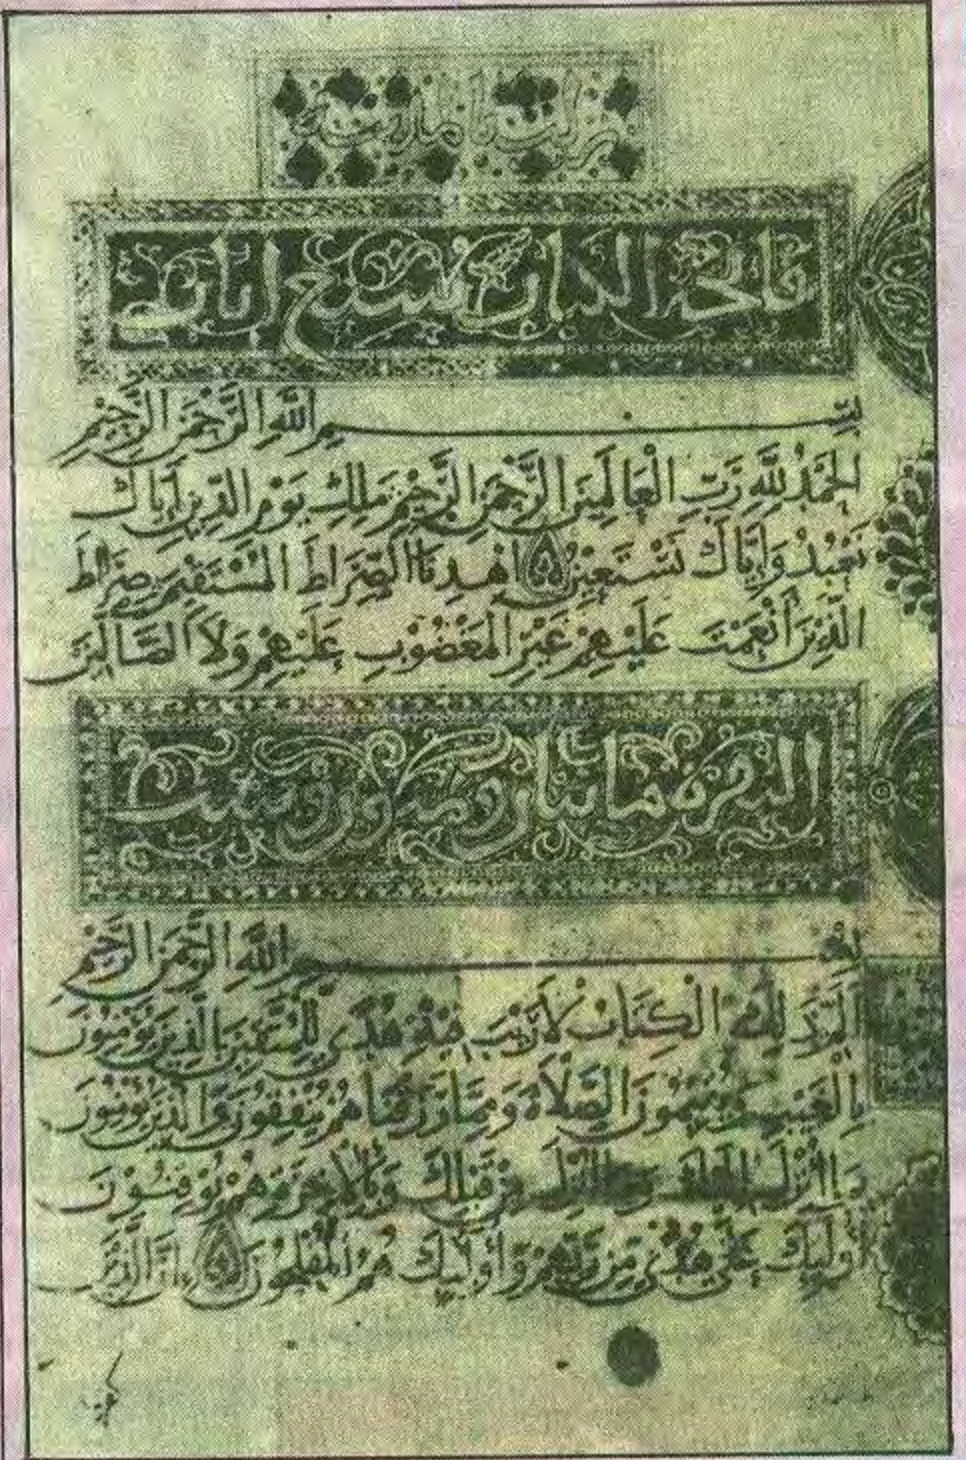 فاتحة الكتاب سبع ايات
بسم الله الرحمن الرحيم
الحمد لله رب العالمين الرحمن الرحيم ملك يوم الدين اياك
نعبد واياك نستعين اهدنا الصراط المستقيم صراط
الذين أنعمت عليهم غير المغضوب عليهم ولا الضالين
البقرة مائتان وست
بسم الله الرحمن الرحيم
الم ذلك الكتاب لا ريب فيه هدى للمتقين الذين يؤمنون
بالغيب ويقيمون الصلاة ومما رزقناهم ينفقون والذين يؤمنون
بما أنزل إليك وما أنزل من قبلك وبالآخرة هم يوقنون
أوليك على هدى من ربهم وأوليك هم المفلحون إن الذين